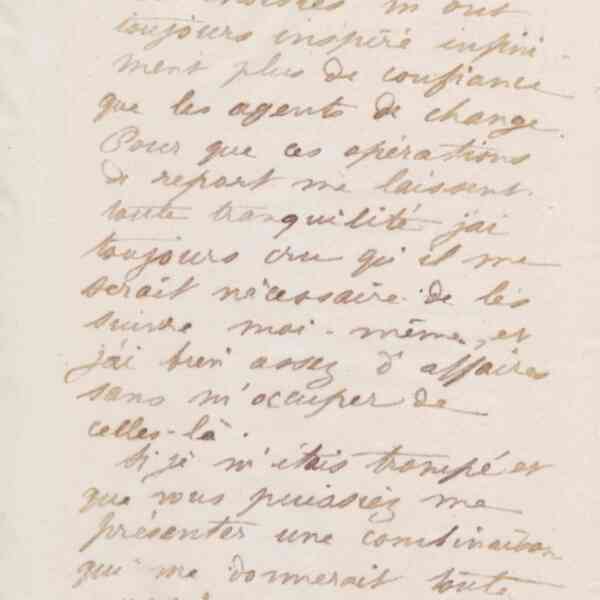 m'ont
toujours inspiré infini-
ment plus de confiance
que les agents de change.
Pour que ces opérations
de report me laissent
toute tranquilité j'ai
toujours cru qu'il me
serait nécessaire de les
suivre moi-même, et
j'ai bien assez d'affaires
sans m'occuper de
celles-là.
Si je m'étais trompé et
que vous puissiez me
présenter une combinaison
qui me donnerait toute